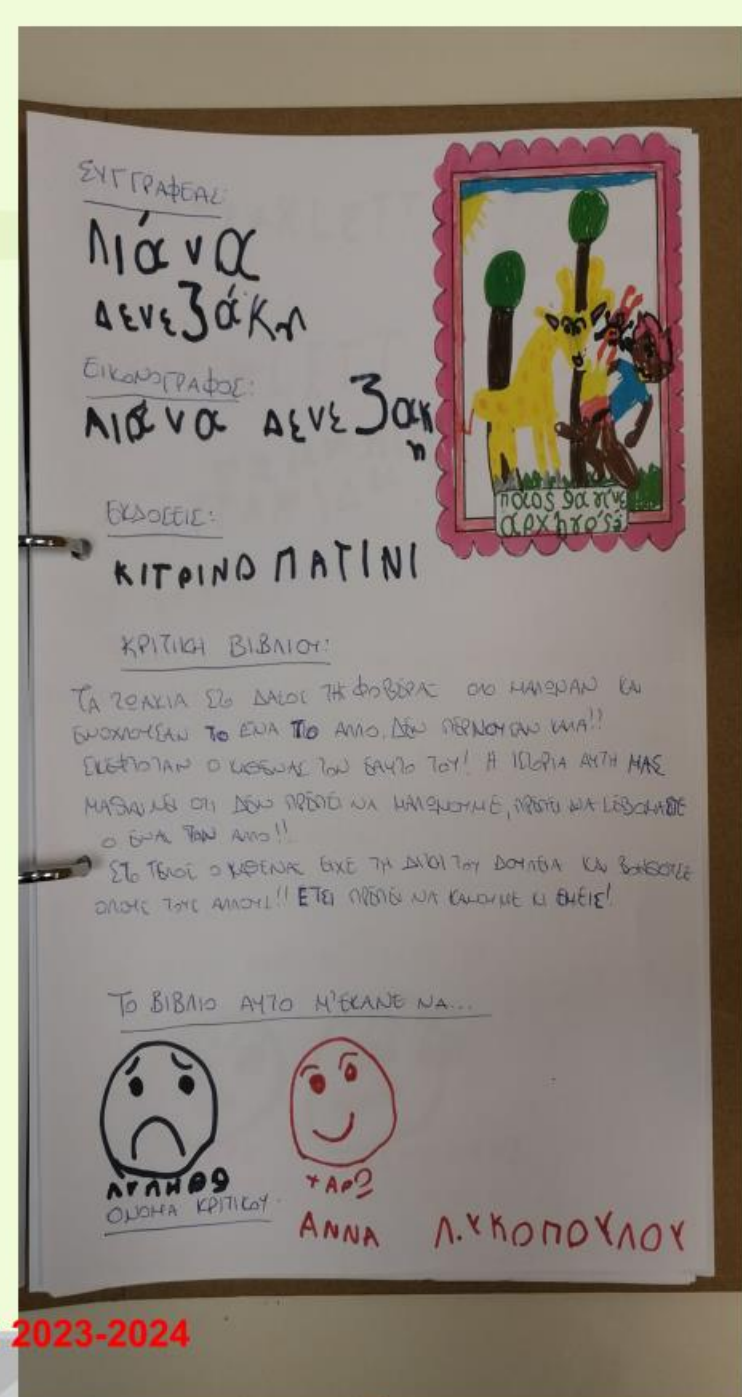 ΣΥΓΓΡΑΦΕΑΣ:
Λιάνα
Δενεζάκη
ΕΙΚΟΝΟΓΡΑΦΟΣ:
Λιάνα Δενεζακη
ποιος θα γίνε
αρχηγός;
ΕΚΔΟΣΕΙΣ:
ΚΙΤΡΙΝΟ ΠΑΤΙΝΙ
ΚΡΙΤΙΚΗ ΒΙΒΛΙΟΥ:
ΤΑ ΖΩΑΚΙΑ ΣΤΟ ΔΑΣΟΣ ΤΗΣ ΦΟΒΕΡΑΣ ΟΛΟ ΜΑΛΩΝΑΝ ΚΑΙ
ΕΝΟΧΛΟΥΣΑΝ ΤΟ ΕΝΑ ΤΟ ΑΛΛΟ. ΔΕΝ ΠΕΡΝΟΥΣΑΝ ΚΑΛΑ!!
ΣΚΕΦΤΟΤΑΝ Ο ΚΑΘΕΝΑΣ ΤΟΝ ΕΑΥΤΟ ΤΟΥ! Η ΙΣΤΟΡΙΑ ΑΥΤΗ ΜΑΣ
ΜΑΘΑΙΝΕΙ ΟΤΙ ΔΕΝ ΠΡΕΠΕΙ ΝΑ ΜΑΛΩΝΟΥΜΕ, ΠΡΕΠΕΙ ΝΑ ΣΕΒΟΜΑΣΤΕ
Ο ΕΝΑΣ ΤΟΝ ΑΛΛΟ!!
ΣΤΟ ΤΕΛΟΣ Ο ΚΑΘΕΝΑΣ ΕΙΧΕ ΤΗ ΔΙΚΗ ΤΟΥ ΔΟΥΛΕΙΑ ΚΑΙ ΒΟΗΘΟΥΣΕ
ΟΛΟΥΣ ΤΟΥΣ ΑΛΛΟΥΣ!! ΕΤΣΙ ΠΡΕΠΕΙ ΝΑ ΚΑΝΟΥΜΕ ΚΙ ΕΜΕΙΣ!
ΤΟ ΒΙΒΛΙΟ ΑΥΤΟ Μ'ΕΚΑΝΕ ΝΑ...
ΟΝΟΜΑ ΚΡΙΤΙΚΟΥ
ΑΝΝΑ Λ.ΥΚΟΠΟΥΛΟΥ
2023-2024